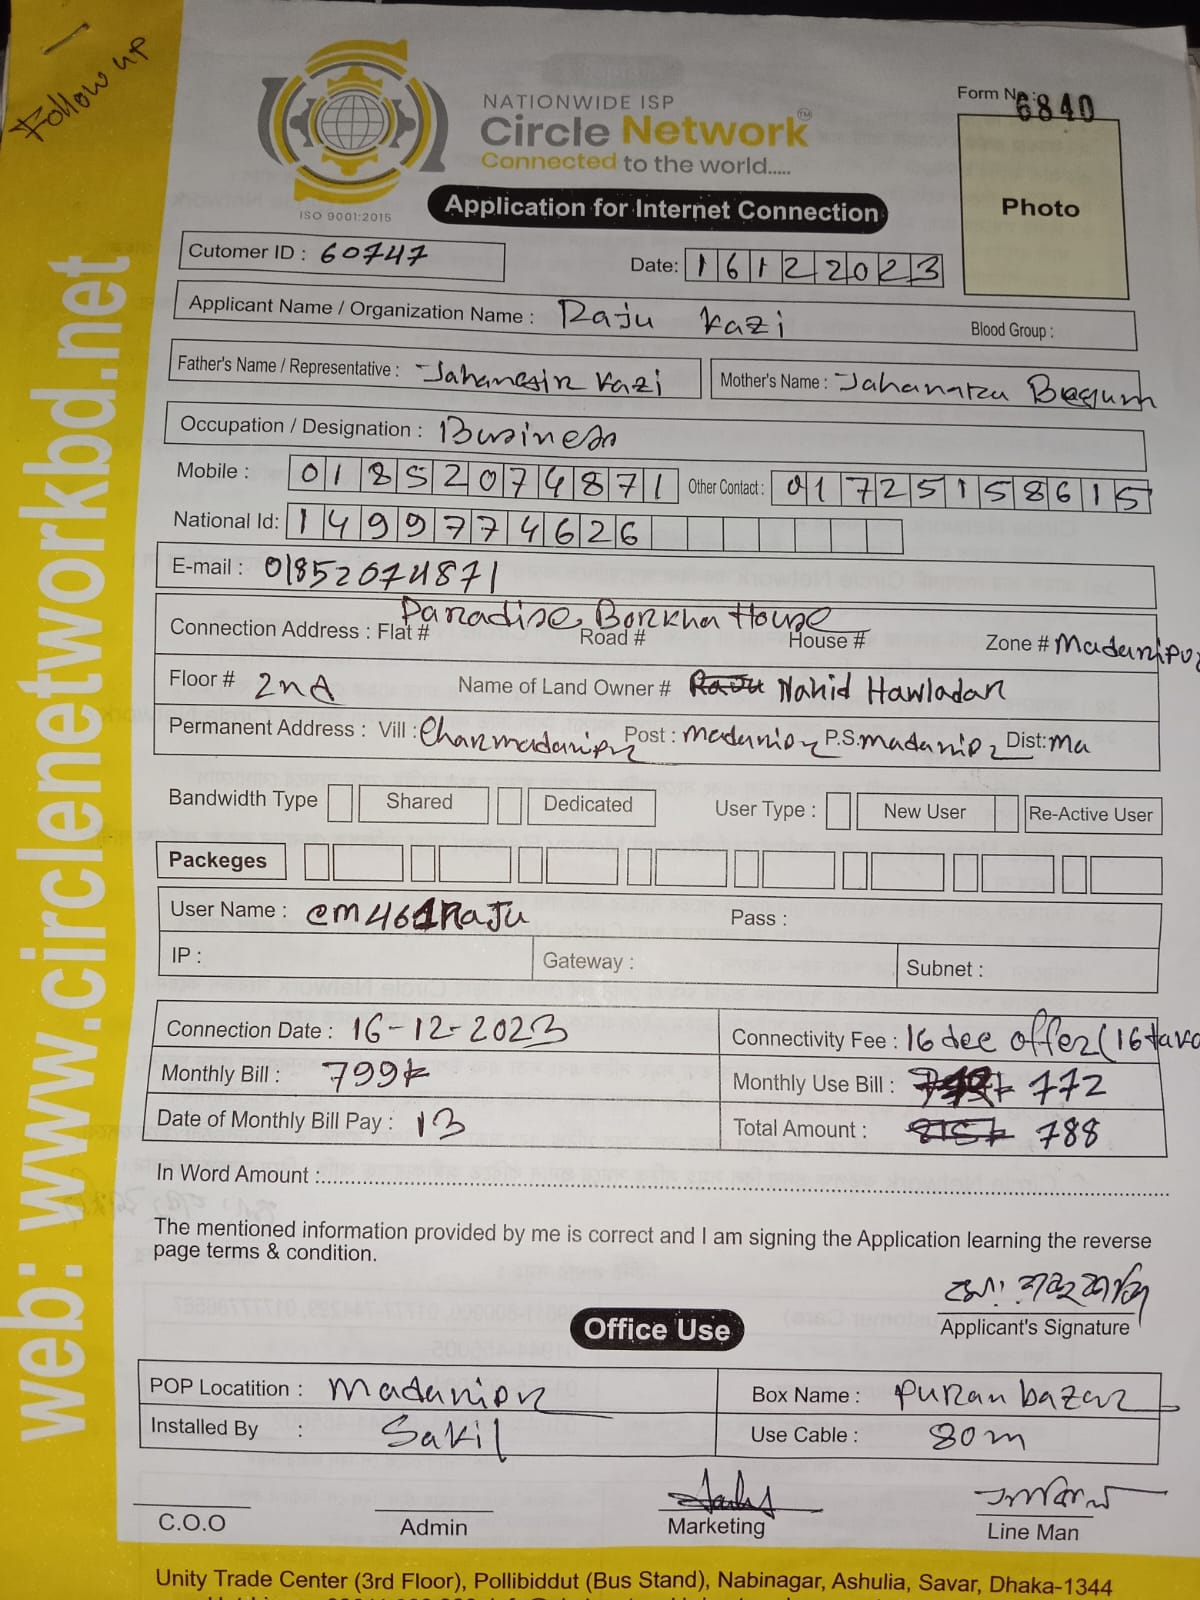 Follow up
NATIONWIDE ISP
Circle Network™
Connected to the world.....
ISO 9001:2015
Form No : 6840
Photo
Application for Internet Connection
Cutomer ID : 60747
Date: 16122023
Applicant Name / Organization Name : Raju Kazi Blood Group :
Father's Name / Representative : Jahangir Kazi Mother's Name : Jahanara Begum
Occupation / Designation : Business
Mobile : 01852074871 Other Contact : 01725158615
National Id: 1499774626
E-mail : 01852074871
Paradise Borkha House
Connection Address : Flat # Road # House # Zone # Madaripur
Floor # 2nd Name of Land Owner # Raju Nahid Hawladar
Permanent Address : Vill : Charmadaripur Post : Madaripur P.S. Madaripur Dist: Ma
Bandwidth Type Shared Dedicated User Type : New User Re-Active User
Packeges
User Name : cm461Raju Pass :
IP : Gateway : Subnet :
Connection Date : 16-12-2023 Connectivity Fee : 16 dec offer (16 taka
Monthly Bill : 799tk Monthly Use Bill : 772
Date of Monthly Bill Pay : 13 Total Amount : 815tk 788
In Word Amount :
The mentioned information provided by me is correct and I am signing the Application learning the reverse
page terms & condition.
Applicant's Signature
Office Use
POP Locatition : Madaripur Box Name : Puran bazar
Installed By : Sakil Use Cable : 80m
C.O.O Admin Marketing Line Man
Unity Trade Center (3rd Floor), Pollibiddut (Bus Stand), Nabinagar, Ashulia, Savar, Dhaka-1344
web: www.circlenetworkbd.net